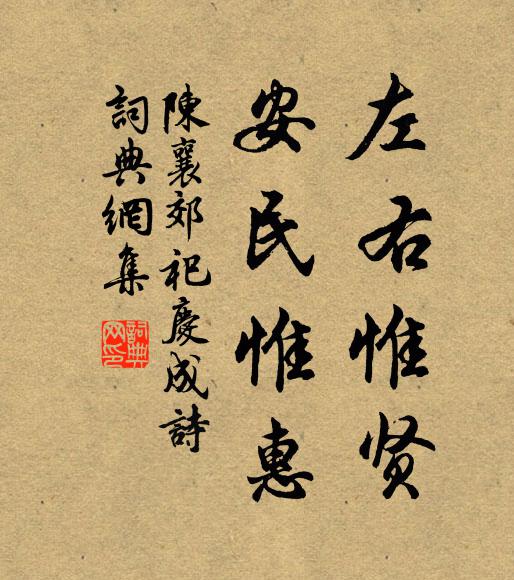 左右惟贤
安民惟惠
陳襄郊祀慶成詩
詞典網集
詞典网印